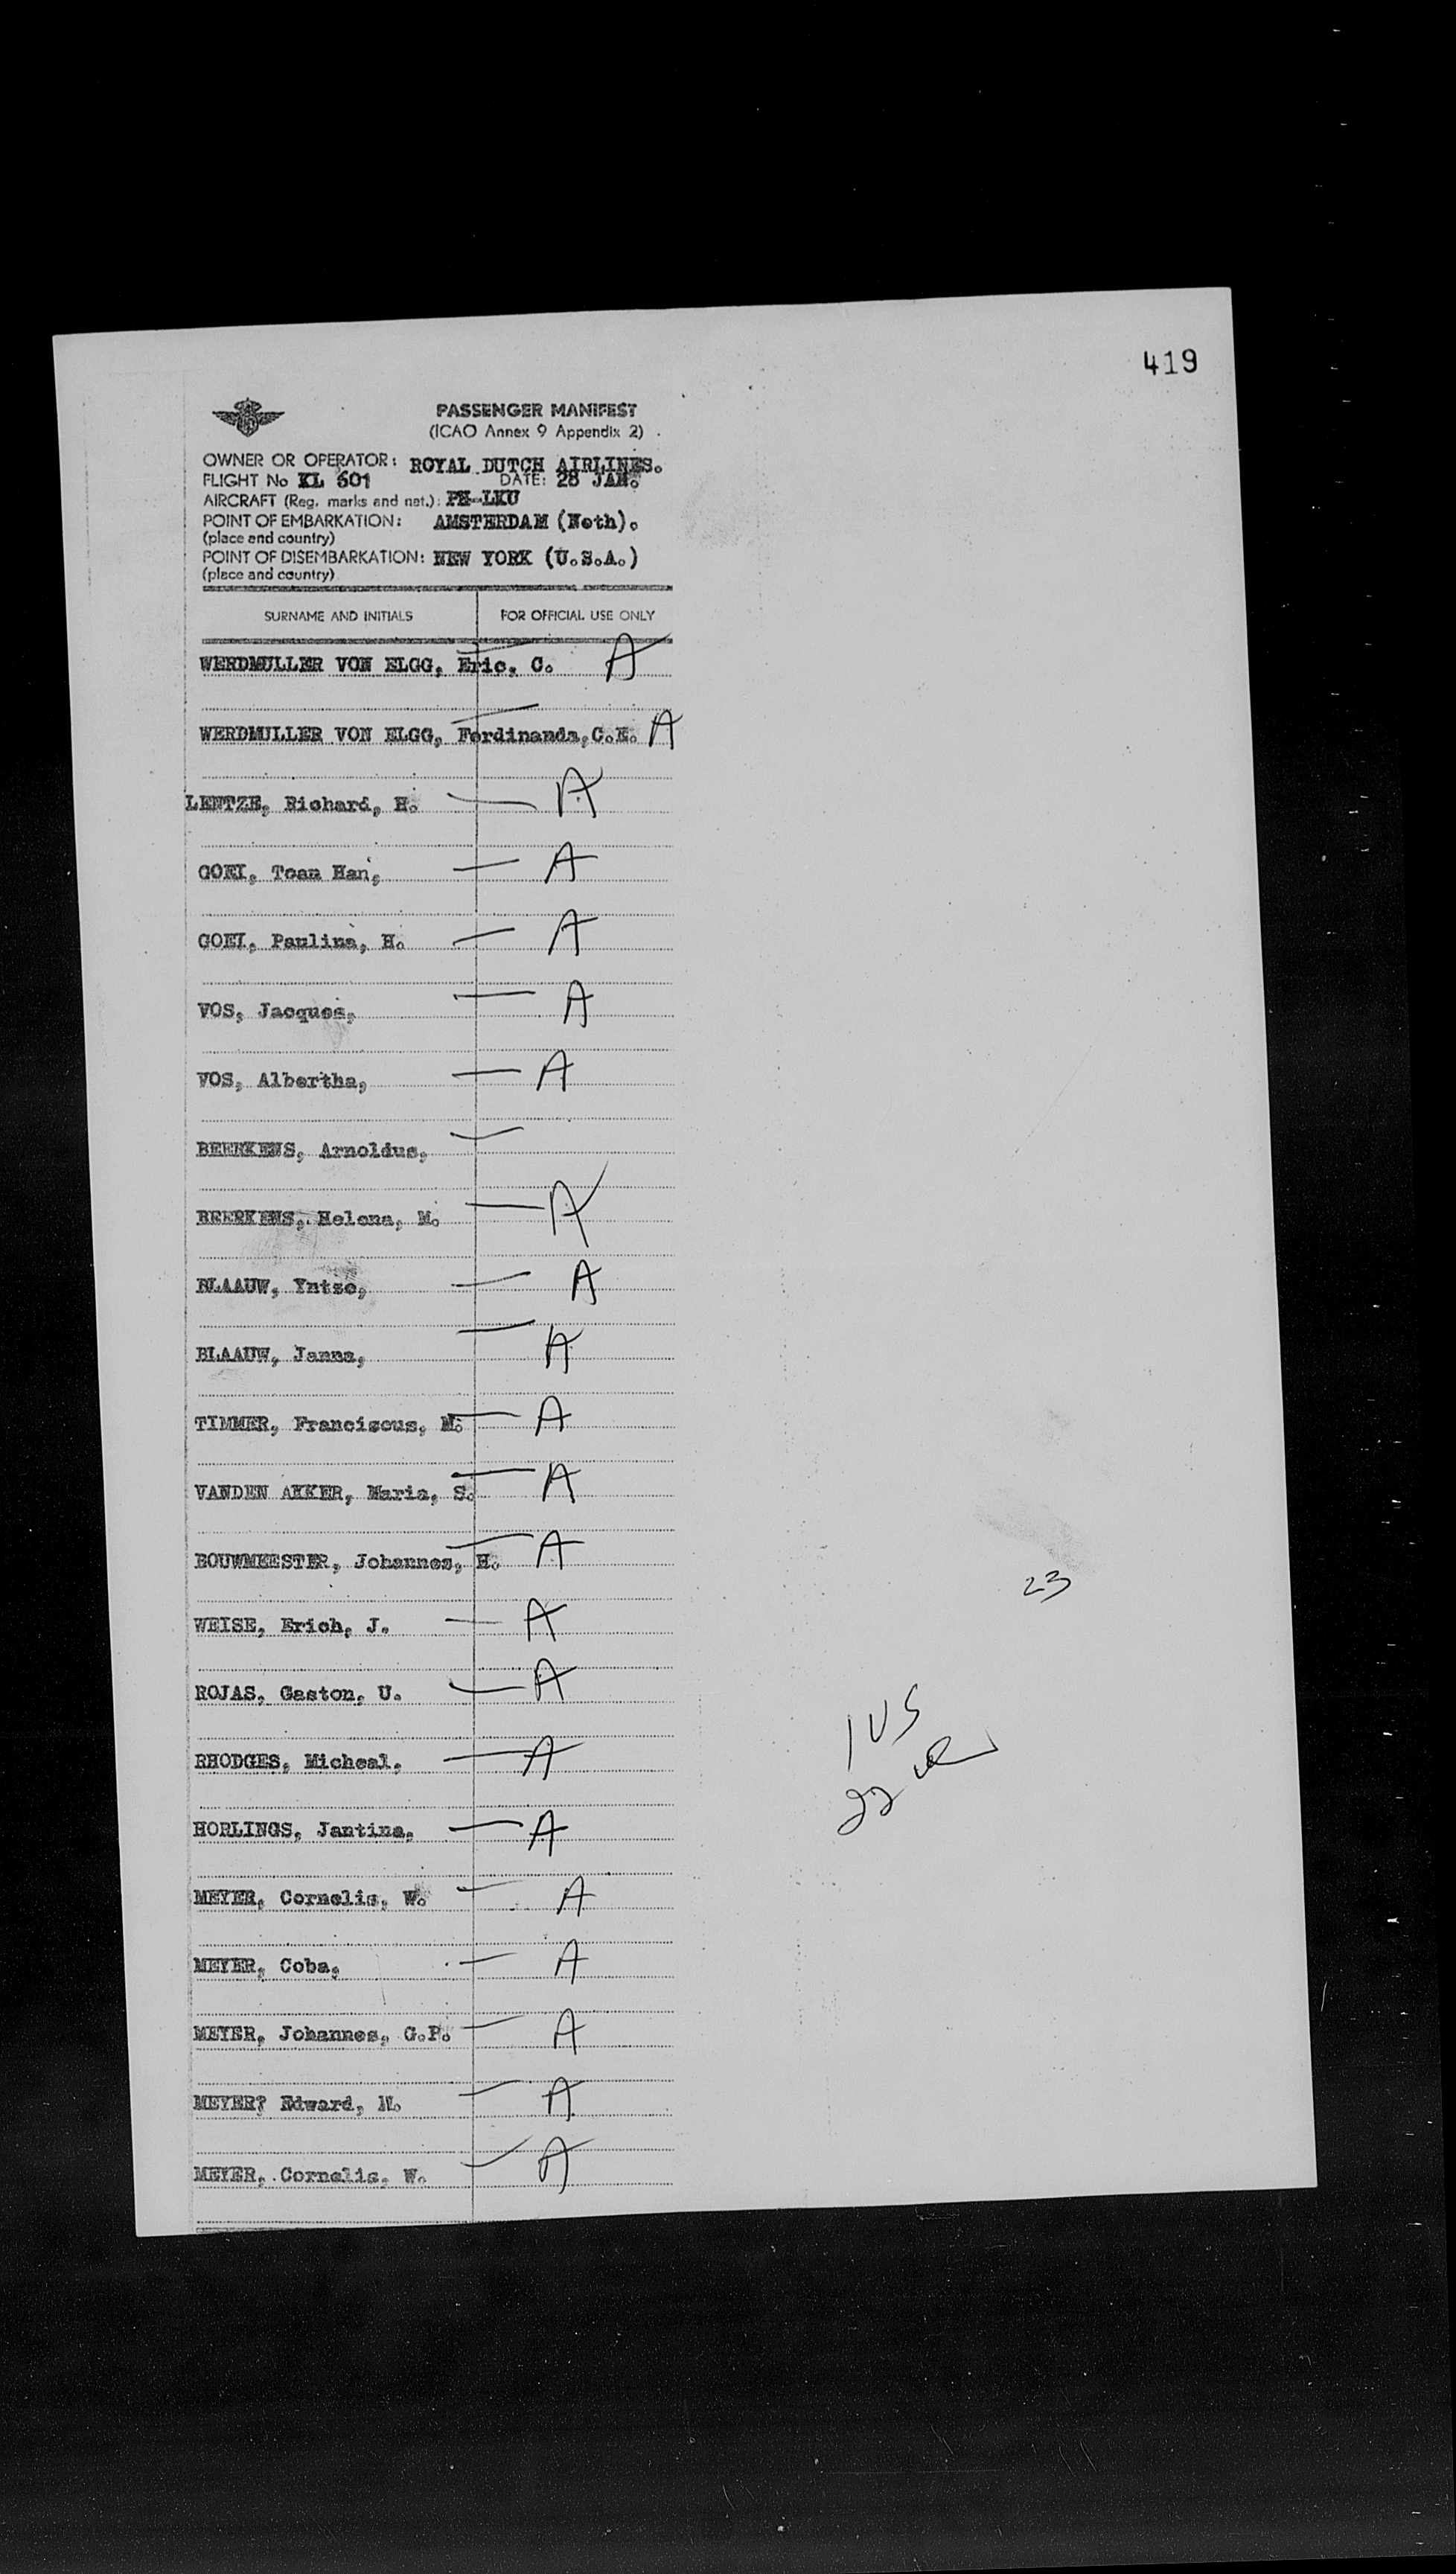 419
PASSENGER MANIFEST
(ICAO Annex 9 Appendix 2)
OWNER OR OPERATOR: ROYAL DUTCH AIRLINES.
FLIGHT No KL 601 DATE: 28 JAN.
AIRCRAFT (Reg. marks and nat.): PH-LKU
POINT OF EMBARKATION: AMSTERDAM (Neth).
(place and country)
POINT OF DISEMBARKATION: NEW YORK (U.S.A.)
(place and country)
SURNAME AND INITIALS FOR OFFICIAL USE ONLY
WERDMULLER VON ELGG, Eric, C. A
WERDMULLER VON ELGG, Ferdinanda, C.E. A
LENTZE, Richard, H. A
GOEI, Toan Han, A
GOEI, Paulina, H. A
VOS, Jacques, A
VOS, Albertha, A
BEERKENS, Arnoldus,
BEERKENS, Helena, M. A
BLAAUW, Yntze, A
BLAAUW, Janna, A
TIMMER, Franciscus, M. A
VANDEN AKKER, Maria, S. A
BOUWMEESTER, Johannes, H. A
23
WEISE, Erich, J. A
ROJAS, Gaston, U. A
1 US
RHODGES, Micheal. A
22
HORLINGS, Jantina. A
MEYER, Cornelis, W. A
MEYER, Coba, A
MEYER, Johannes, G.P. A
MEYER? Edward, M. A
MEYER, Cornelis, W. A